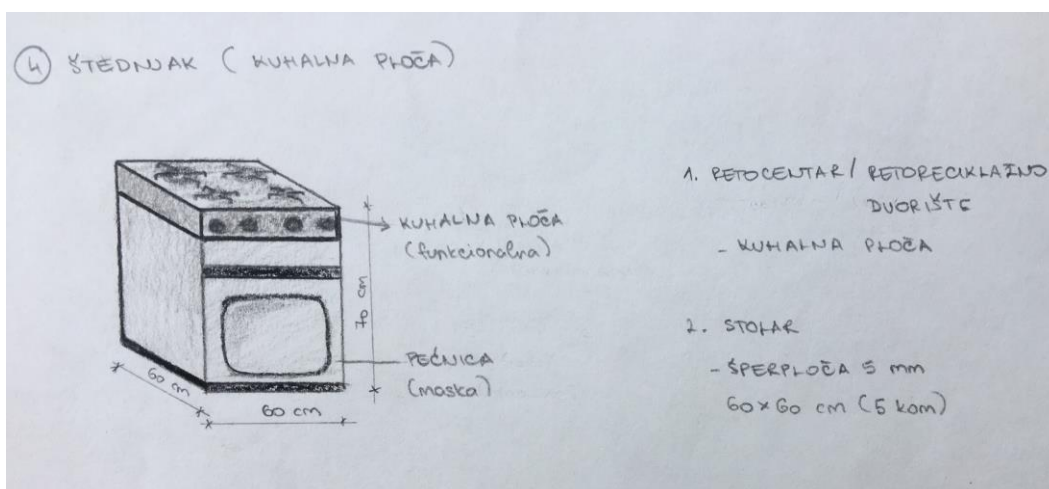 4 ŠTEDNJAK (KUHALNA PLOČA)
KUHALNA PLOČA
(funkcionalna)
70 cm
PEĆNICA
(maska)
60 cm
60 cm
1. RETOCENTAR / RETORECIKLAŽNO
DVORIŠTE
- KUHALNA PLOČA
2. STOLAR
- ŠPERPLOČA 5 mm
60x60 cm (5 kom)